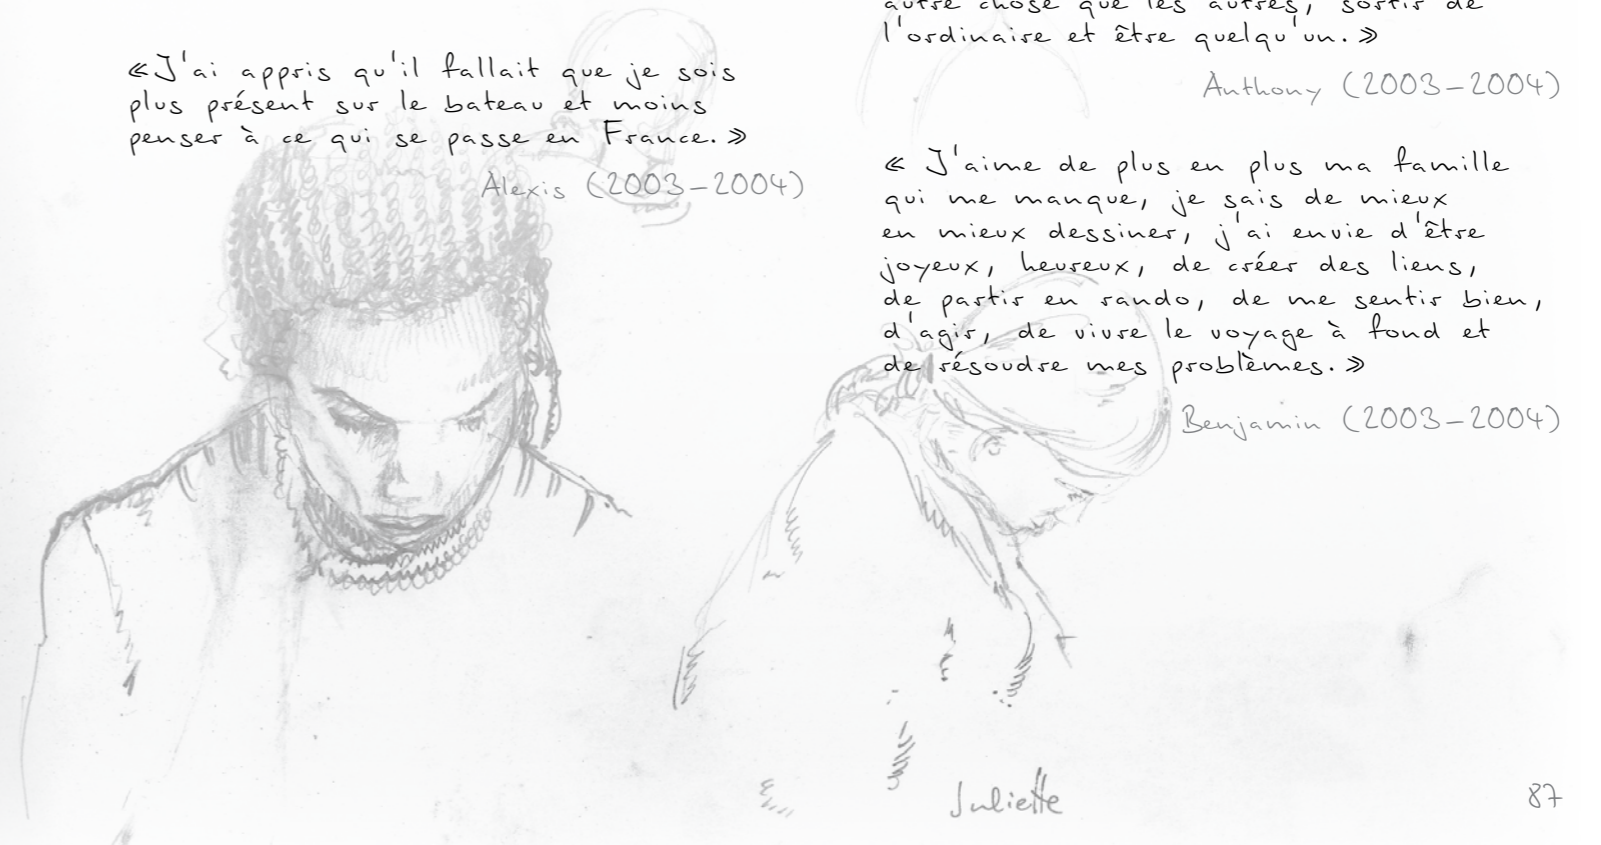 «J'ai appris qu'il fallait que je sois
plus présent sur le bateau et moins
penser à ce qui se passe en France.»
Alexis (2003-2004)
autre chose que les autres, sortir de
l'ordinaire et être quelqu'un.»
Anthony (2003-2004)
« J'aime de plus en plus ma famille
qui me manque, je sais de mieux
en mieux dessiner, j'ai envie d'être
joyeux, heureux, de créer des liens,
de partir en rando, de me sentir bien,
d'agir, de vivre le voyage à fond et
de résoudre mes problèmes.»
Benjamin (2003-2004)
Juliette
87